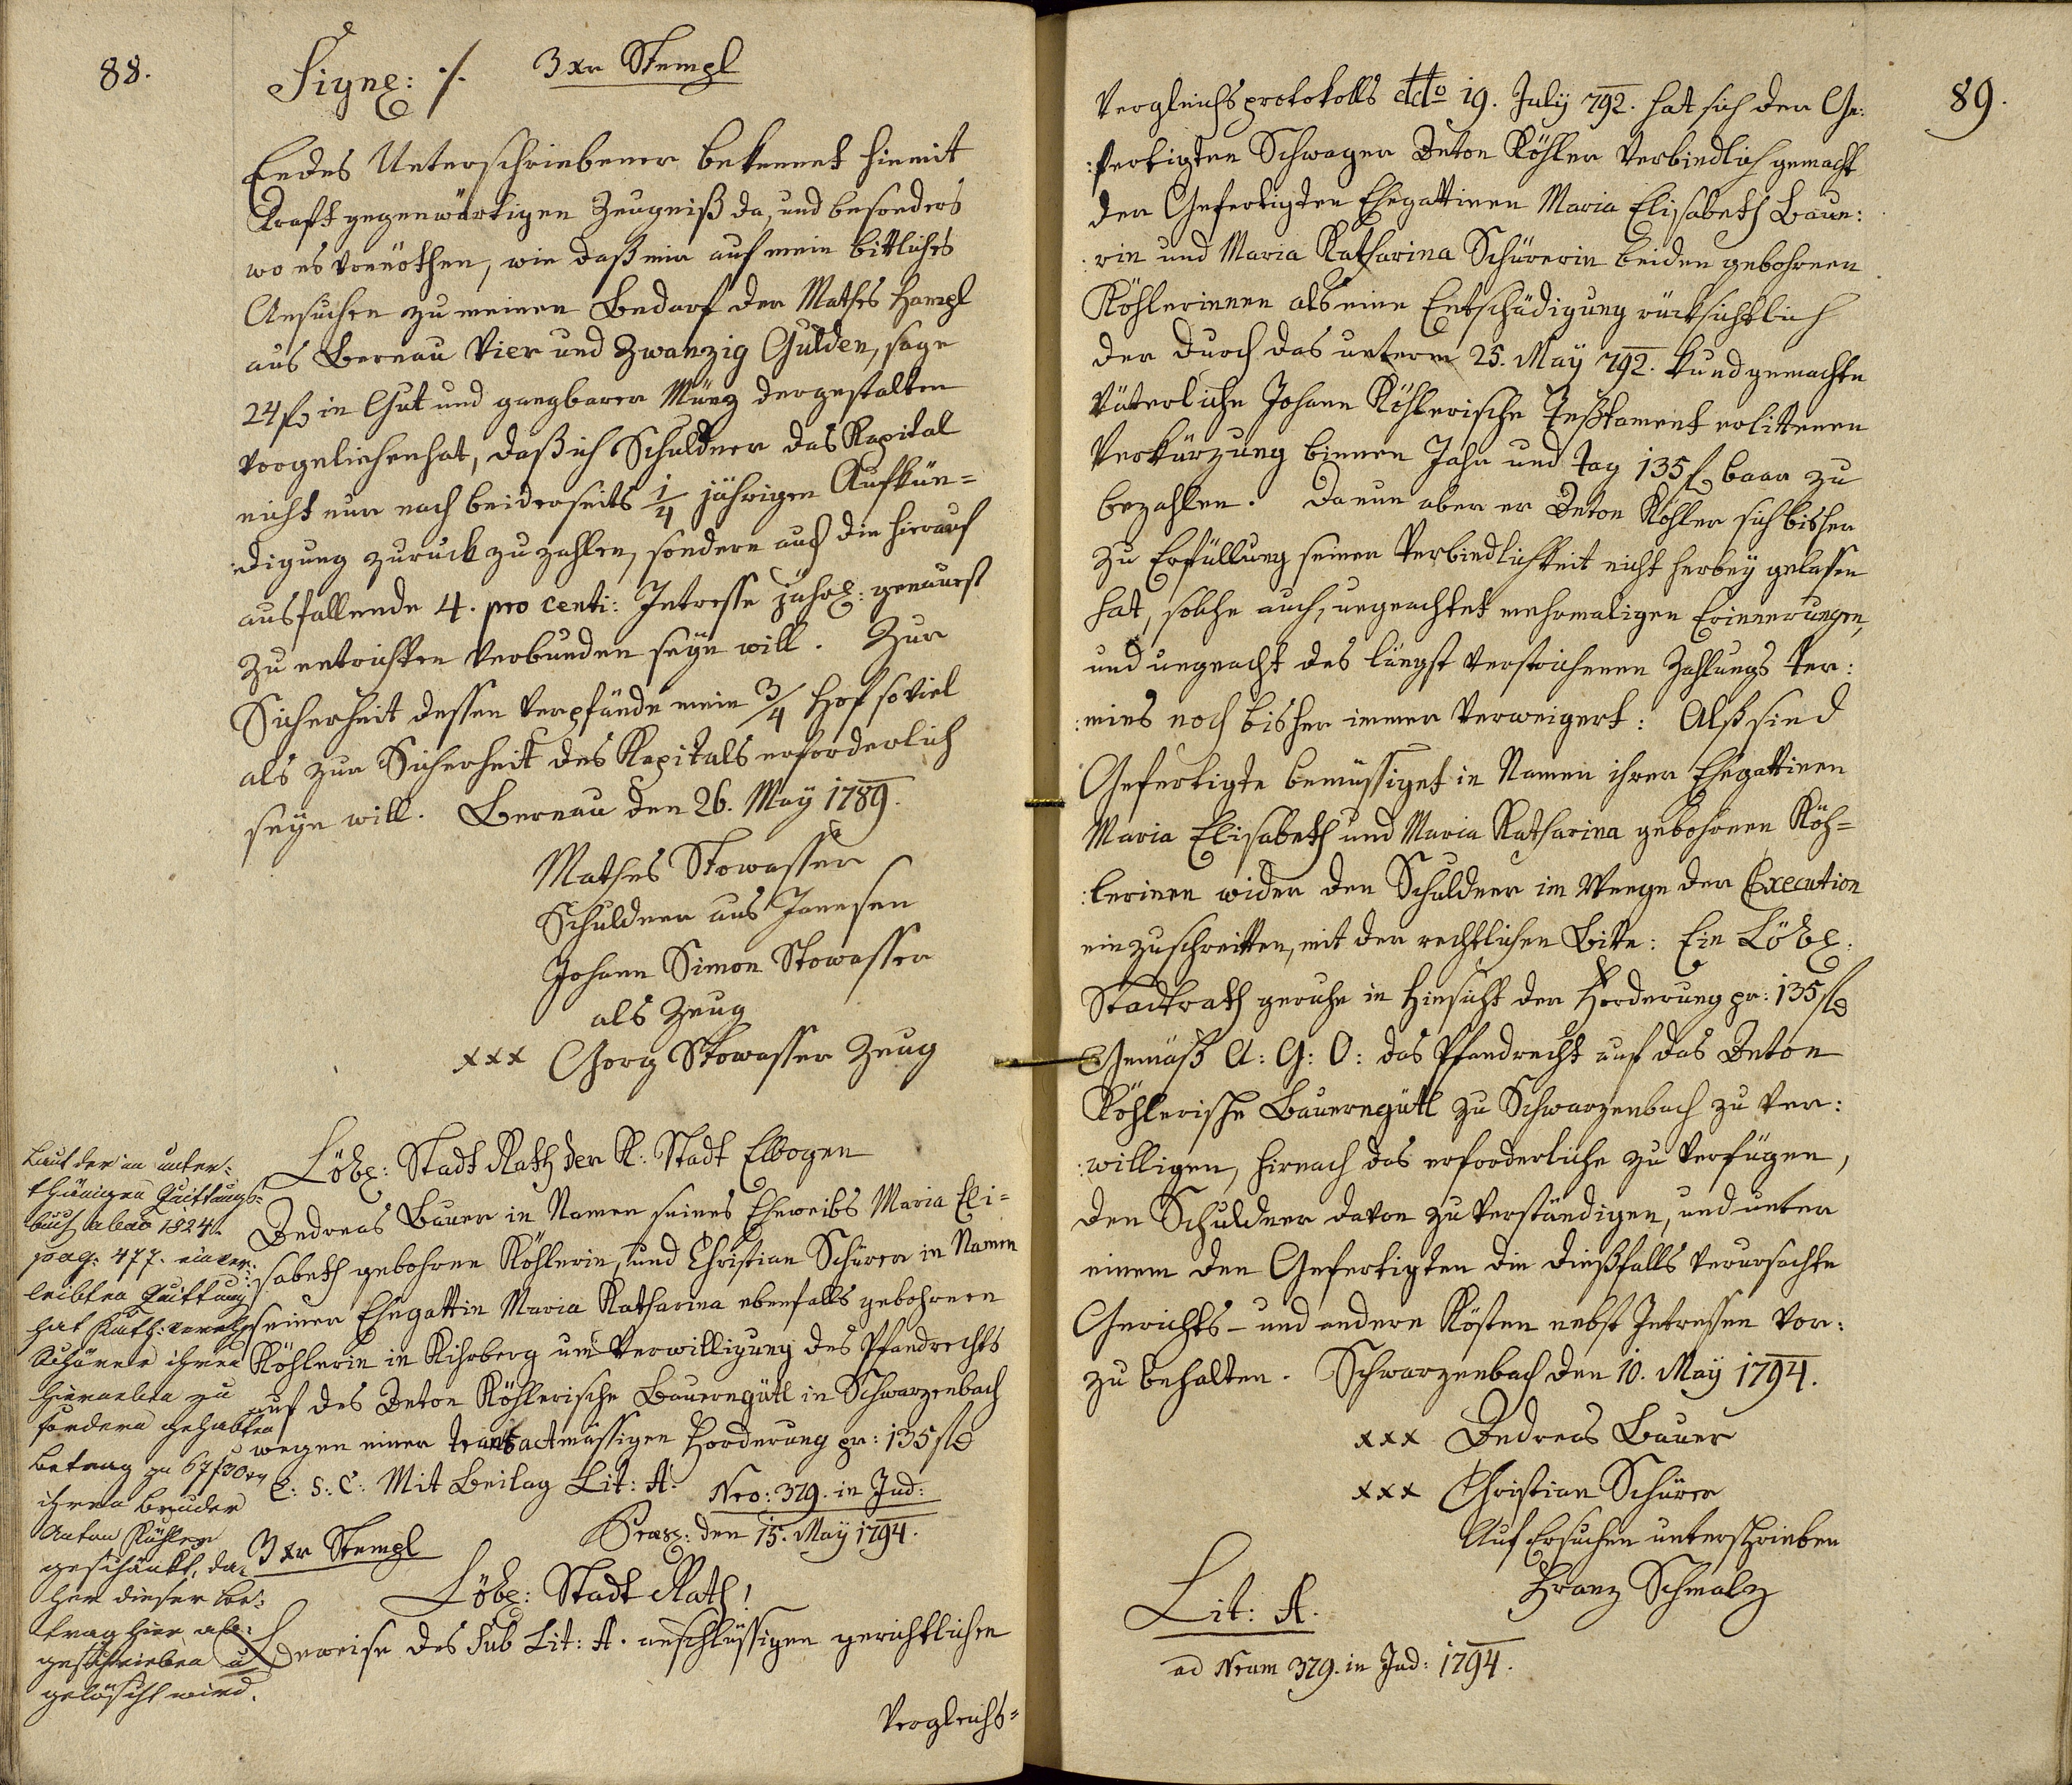 88.
Signe: ·/. 3 xr Stempl
Endes Unterschriebener bekennet hiemit
Kraft gegenwärtigen Zeugniß da, und besonders
wo es vonnöthen, wie daß mir auf mein bittliches
Ansuchen zu meinen Bedarf der Mathes Hampl
aus Bernau Vier und Zwanzig Gulden, sage
24 f in Gut und gangbarer Münz dergestalten
vorgeliehen hat, daß ich Schuldner das Kapital
nicht nur nach beiderseits 1/4 jährigen Aufkün=
:digung zuruck zu zahlen, sondern auch die hierauf
ausfallende 4. pro centi: Intresse jährl: genauest
zu entrichten verbunden seyn will. Zur
Sicherheit dessen verpfände mein 3/4 Hof so viel
als zur Sicherheit des Kapitals erforderlich
seyn will. Bernau den 26. May 1789.
Mathes Stowasser
Schuldner aus
Johann Simon Stowasser
als Zeug
xxx Georg Stowasser Zeug
Löbl: Stadt Rath der K: Stadt Elbogen
Andreas Bauer in Namen seines Eheweibs Maria Eli=
:sabeth gebohrne Köhlerin, und Christian Schürer in Namen
seiner Ehegattin Maria Katharina ebenfalls gebohrnen
Köhlerin in Kihrberg um Verwilligung des Pfandrechts
auf des Anton Köhlerische Bauerngütl in Schwarzenbach
wegen einer transactmässigen Forderung pr: 135 f
C: S: C: Mit Beilag Lit: A:
Nro: 379. in Jud:
Præs: den 15. May 1794.
3 xr Stempl
Löbl: Stadt Rath!
Erweise des sub Lit: A. anschlüssigen gerichtlichen
Vergleichs=
Laut der im unter=
thänigen Quittungs=
buch abao 1824.
pag: 477. einver=
leibten Quittung
hat Kath: verehl
Schürer ihren
hieraelen zu
fordern gehabten
Betrag zu 67 f 30 xr
ihrem Bruder
Anton Köhler
geschänkt, da=
her dieser Be=
trag hier ab=
geschrieben u
gelöscht wird.
89.
Vergleichsprotokolls ddto 19. July 792. hat sich der Ge:
:fertigten Schwager Anton Köhler verbindlich gemacht
den Gefertigten Ehegattinen Maria Elisabeth Baue:
:rin und Maria Katharina Schürerin beiden gebohrnen
Köhlerinnen als eine Entschädigung rücksichtlich
der durch das unterm 25. May 792. kundgemachte
Väterliche Johann Köhlerische Testament erlittenen
Verkürzung binnen Jahr und Tag 135 f baar zu
bezahlen. Da nun aber er Anton Köhler sich bisher
zu Erfüllung seiner Verbindlichkeit nicht herbey gelassen
hat, solche auch, ungeachtet mehrmaligen Erinnerungen,
und ungeacht des längst verstrichenen Zahlungs ter:
:mins noch bisher immer verweigert: Alß sind
Gefertigte bemüssiget in Namen ihrer Ehegattinen
Maria Elisabeth und Maria Katharina gebohrnen Köh=
:lerinen wider den Schuldner im Weege der Execution
einzuschreitten, mit der rechtlichen Bitte: Ein Löbl:
Stadtrath geruhe in Hinsicht der Forderung pr: 135 f
Gemäß A: G: O: das Pfandrecht auf das Anton
Köhlerische Bauerngütl zu Schwarzenbach zu ver:
:willigen, hirnach das erforderliche zu verfügen,
den Schuldner davon zu verständigen, und unter
einem den Gefertigten die dießfalls verursachte
Gerichts- und andere Kösten nebst Intressen vor:
zu behalten. Schwarzenbach den 10. May 1794.
xxx Andreas Bauer
xxx Christian Schürer
Auf Ersuchen unterschrieben
Franz Schmalz
Lit: A.
ad Nrum 379. in Jud: 1794.